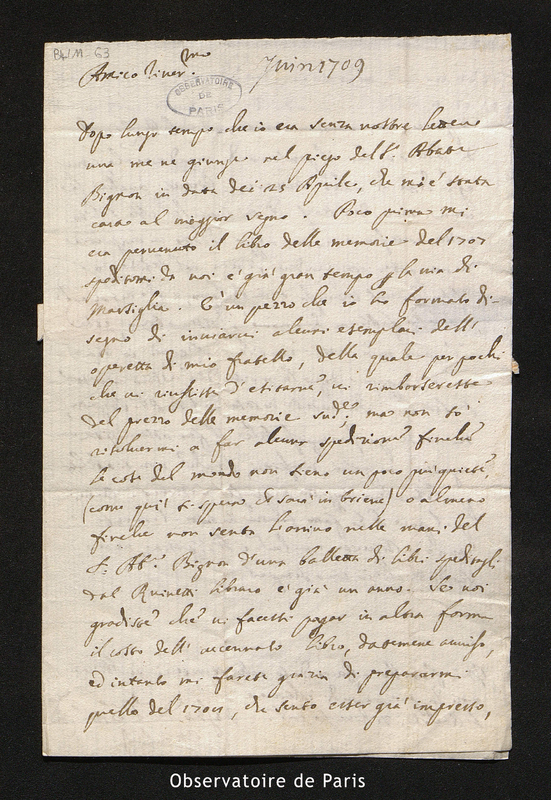 B4/11-63
Amico River.mo
Juin 1709
OBSERVATOIRE
DE
PARIS
Dopo lungo tempo che io era senza vostre lettere
una me ne giunge nel piego dell' S. Abate
Bignon in data dei 25 Aprile, che mi è stata
cara al maggior segno. Poco prima mi
era pervenuto il libro delle memorie del 1707
speditomi da voi è già gran tempo p la via di
Marsiglia. È un pezzo che io ho formato di-
segno di inviarvi alcuni esemplari dell'
operetta di mio fratello, della quale per pochi
che vi riuscisse d'esitarne, vi rimborsereste
del prezzo delle memorie sud.e; ma non so
risolvermi a far alcuna spedizione finche
le cose del mondo non sieno un poco più quiete,
(come qui si spera che sarà in breve) o almeno
finche non senta l'arrivo nelle mani del
S. Ab. Bignon d'una balletta di libri speditagli
dal libraro è già un anno. Se voi
gradiste che vi facessi pagar in altra forma
il costo dell' accennato libro, datemene avviso,
ed intanto mi farete grazia di prepararmi
quello del 1708, che sento esser già impresso,
Observatoire de Paris